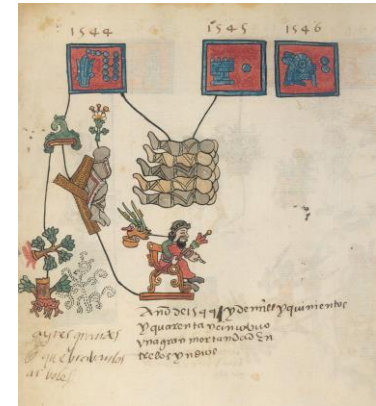 1544 1545 1546
Año de 1544 y de mill y quinientos
y quarenta y cinco hubo
una gran mortandad en
tre los yndios
ayres grandes
que quebraron los
arboles